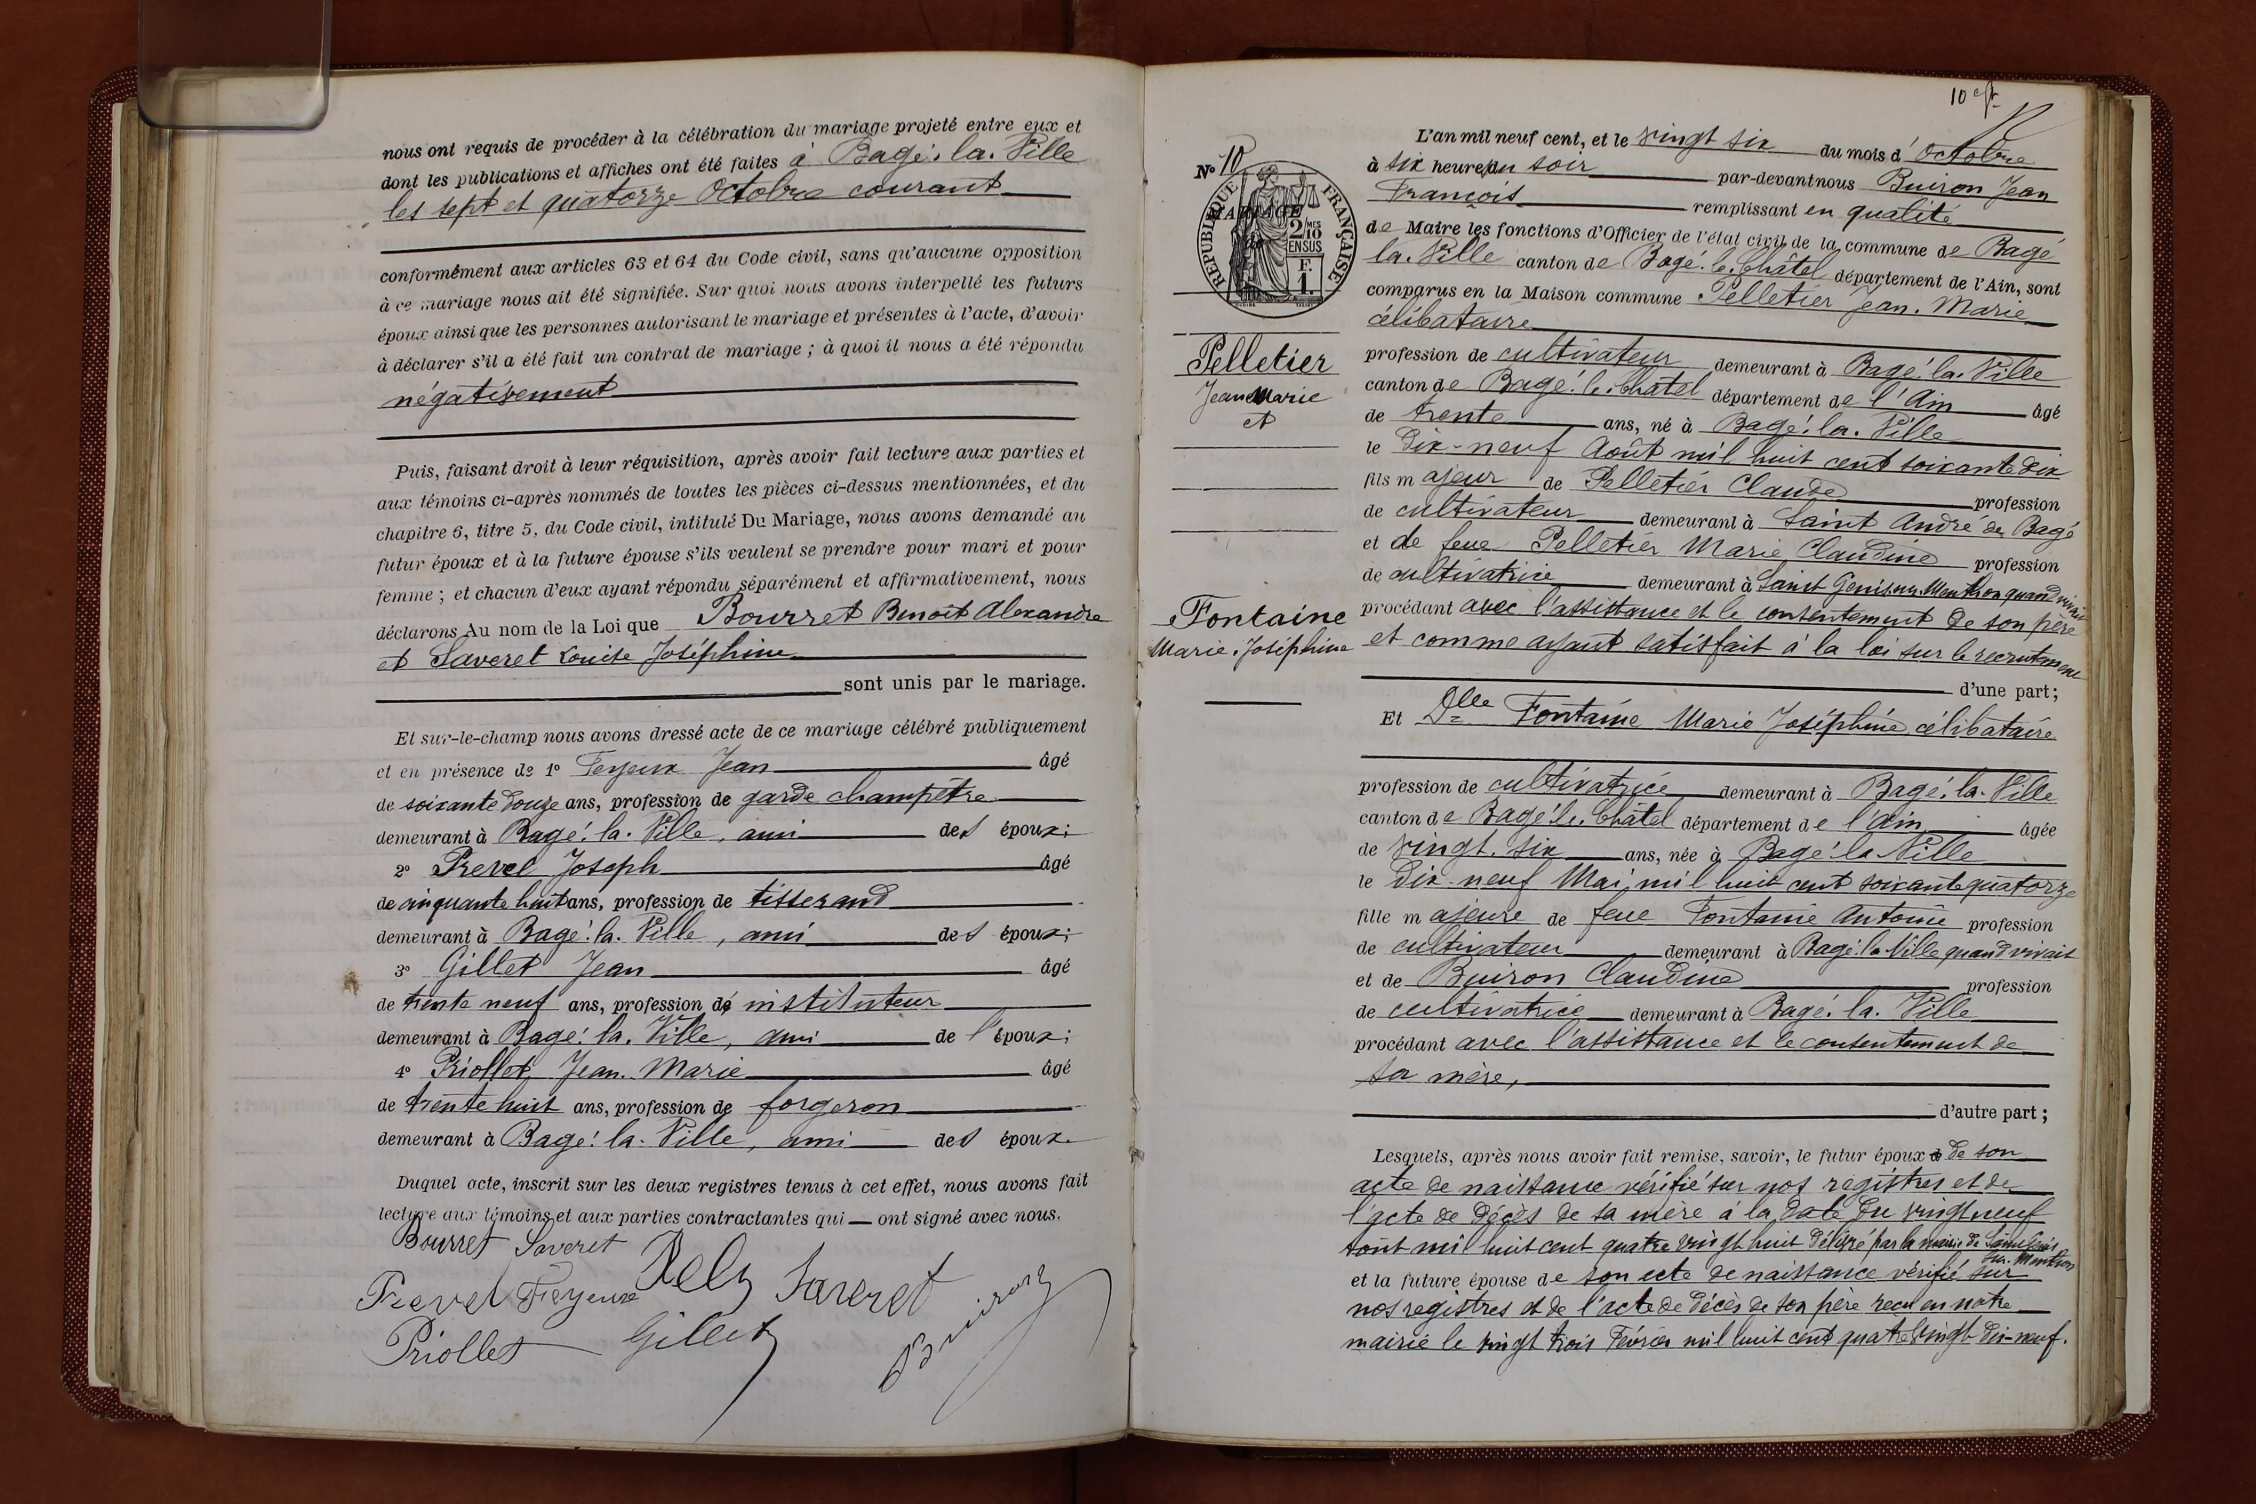 nous ont requis de procéder à la célébration du mariage projeté entre eux et
dont les publications et affiches ont été faites à Bagé-la-Ville
les sept et quatorze Octobre courant
conformément aux articles 63 et 64 du Code civil, sans qu'aucune opposition
à ce mariage nous ait été signifiée. Sur quoi nous avons interpellé les futurs
époux ainsi que les personnes autorisant le mariage et présentes à l'acte, d'avoir
à déclarer s'il a été fait un contrat de mariage ; à quoi il nous a été répondu
négativement
Puis, faisant droit à leur réquisition, après avoir fait lecture aux parties et
aux témoins ci-après nommés de toutes les pièces ci-dessus mentionnées, et du
chapitre 6, titre 5, du Code civil, intitulé Du Mariage, nous avons demandé au
futur époux et à la future épouse s'ils veulent se prendre pour mari et pour
femme ; et chacun d'eux ayant répondu séparément et affirmativement, nous
déclarons Au nom de la Loi que Bourret Benoît Alexandre
et Saveret Louise Joséphine
sont unis par le mariage.
Et sur-le-champ nous avons dressé acte de ce mariage célébré publiquement
et en présence de 1° Feyeux Jean âgé
de soixante douze ans, profession de garde champêtre
demeurant à Bagé-la-Ville, ami des époux;
2° Prevel Joseph âgé
de cinquante huit ans, profession de tisserand
demeurant à Bagé-la-Ville, ami des époux;
3° Gillet Jean âgé
de trente neuf ans, profession de instituteur
demeurant à Bagé-la-Ville, ami de l'époux;
4° Priollet Jean-Marie âgé
de trente huit ans, profession de forgeron
demeurant à Bagé-la-Ville, ami des époux.
Duquel acte, inscrit sur les deux registres tenus à cet effet, nous avons fait
lecture aux témoins et aux parties contractantes qui ont signé avec nous.
Bourret Saveret
Prevel Feyeux Saveret
Priollet Gillet Buiron
10e ft
N° 10
MARIAGE
de
RÉPUBLIQUE FRANÇAISE
2/10 MES
EN SUS
F.
1.
Pelletier
Jean Marie
et
Fontaine
Marie-Joséphine
L'an mil neuf cent, et le vingt six du mois d'Octobre
à six heures du soir par-devant nous Buiron Jean
François remplissant en qualité
de Maire les fonctions d'Officier de l'état civil de la commune de Bagé
la-Ville canton de Bagé-le-Châtel département de l'Ain, sont
comparus en la Maison commune Pelletier Jean-Marie
célibataire
profession de cultivateur demeurant à Bagé-la-Ville
canton de Bagé-le-Châtel département de l'Ain âgé
de trente ans, né à Bagé-la-Ville
le dix-neuf Août mil huit cent soixante dix
fils majeur de Pelletier Claude profession
de cultivateur demeurant à Saint André de Bagé
et de feue Pelletier Marie Claudine profession
de cultivatrice demeurant à Saint Genis sur Menthon quand vivait
procédant avec l'assistance et le consentement de son père
et comme ayant satisfait à la loi sur le recrutement
d'une part;
Et Dlle Fontaine Marie Joséphine célibataire
profession de cultivatrice demeurant à Bagé-la-Ville
canton de Bagé-le-Châtel département de l'Ain âgée
de vingt-six ans, née à Bagé-la-Ville
le dix-neuf Mai mil huit cent soixante quatorze
fille majeure de feue Fontaine Antoine profession
de cultivateur demeurant à Bagé-la-Ville quand vivait
et de Buiron Claudine profession
de cultivatrice demeurant à Bagé-la-Ville
procédant avec l'assistance et le consentement de
sa mère,
d'autre part;
Lesquels, après nous avoir fait remise, savoir, le futur époux de son
acte de naissance vérifié sur nos registres et de
l'acte de décès de sa mère à la date du vingt neuf
août mil huit cent quatre vingt huit délivré par la mairie de Saint Genis
sur Menthon
et la future épouse de son acte de naissance vérifié sur
nos registres et de l'acte de décès de son père reçu en notre
mairie le vingt trois Février mil huit cent quatre vingt dix-neuf.